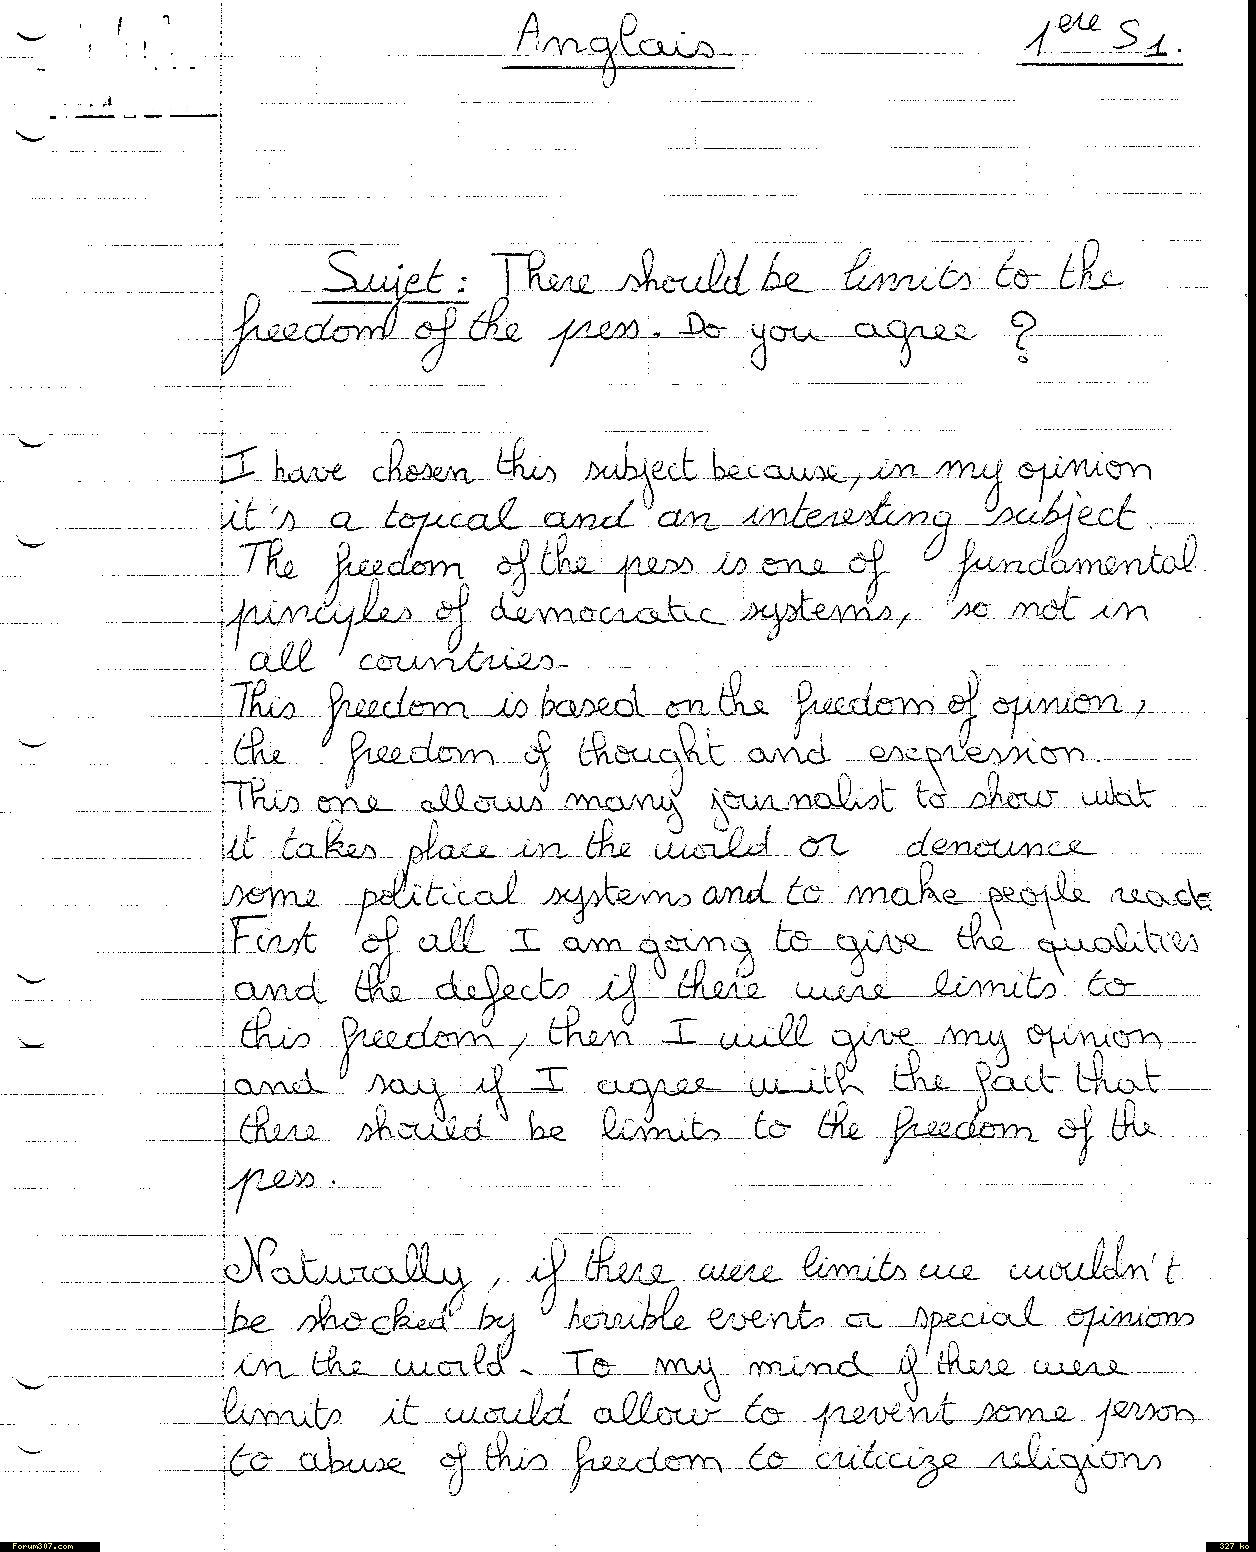 Anglais
1ere S1.
Sujet: There should be limits to the
freedom of the press. Do you agree ?
I have chosen this subject because, in my opinion
it's a topical and an interesting subject
The freedom of the press is one of fundamental
principles of democratic systems, so not in
all countries
This freedom is based on the freedom of opinion,
the freedom of thought and expression.
This one allows many journalist to show what
it takes place in the world or denounce
some political systems and to make people
First of all I am going to give the qualities
and the defects if there were limits to
this freedom, then I will give my opinion
and say if I agree with the fact that
there should be limits to the freedom of the
press.
Naturally, if there were limits we wouldn't
be shocked by horrible events or special opinions
in the world. To my mind if there were
limits it would allow to prevent some person
to abuse of this freedom to criticize religions
Forum307.com
327 ko